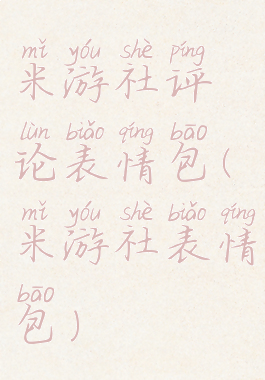 mǐ yóu shè píng
米游社评
lùn biǎo qíng bāo
论表情包(
mǐ yóu shè biǎo qíng
米游社表情
bāo
包)